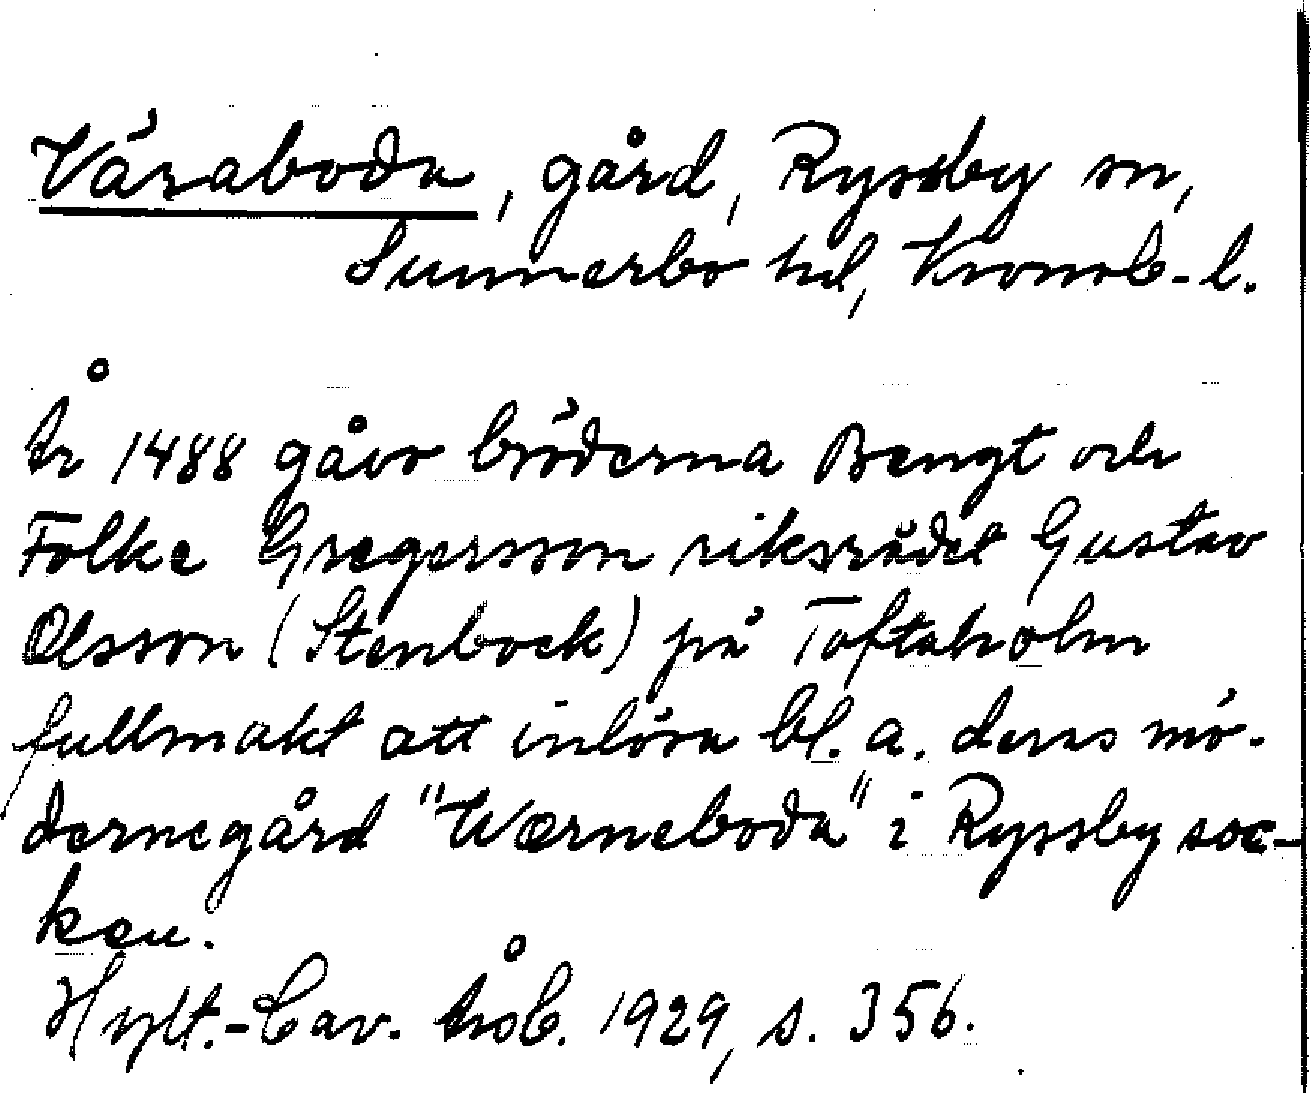 Väraboda, gård, Ryssby sn,
Sunnerbo hd, Kronob-l.
År 1488 gåvo bröderna Bengt och
Folke Gregersson riksrådet Gustav
Olsson (Stenbock) på Toftaholm
fullmakt att inlösa bl. a. deras mö-
dernegård "Wærneboda" i Ryssby soc-
ken.
Hylt.-Cav. årsb. 1929, s. 356.